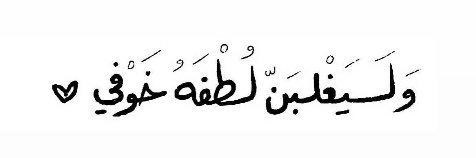 وَلَسَيَغْلبَنّ لُطْفَهُ خَوْفي